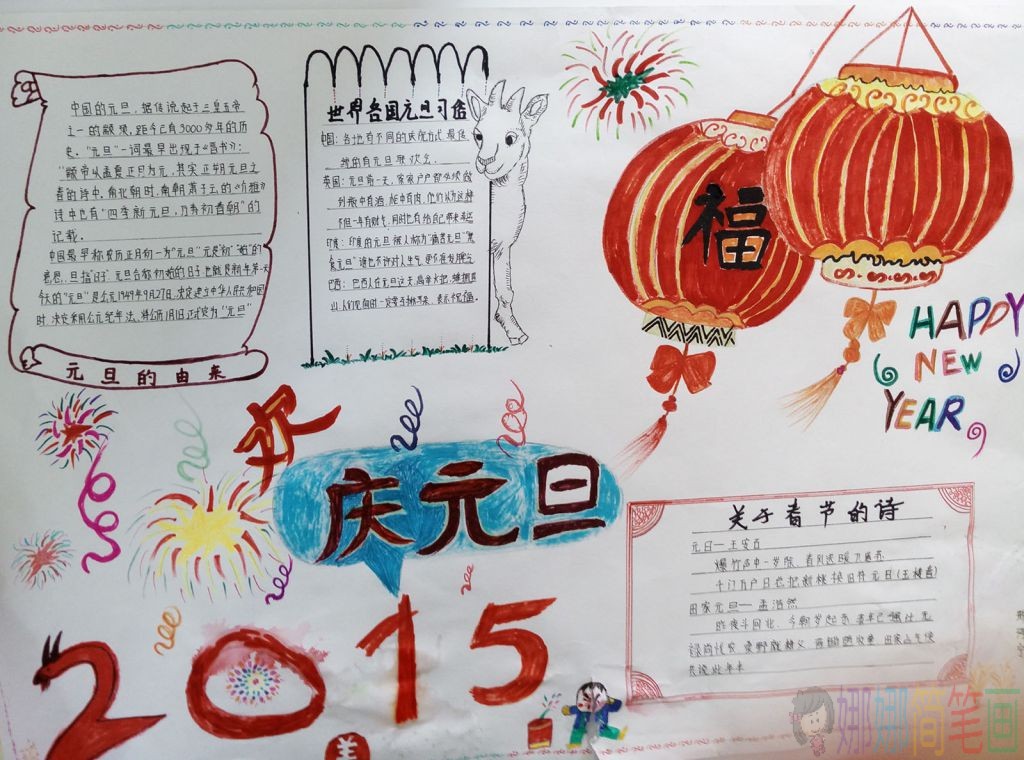 中国的元旦，据传说起于三皇五帝
之一的颛顼，距今已有3000多年的历
史。"元旦"一词最早出现于《晋书》：
"颛帝以孟夏正月为元，其实正朔元旦之
春"的诗中。南北朝时，南朝萧子云的《介雅》
诗中也有"四季新元旦，万寿初春朝"的
记载。
中国最早称农历正月初一为"元旦"元是"初""始"的
意思，旦指"日子"元旦合称初始的日子也就是新年第一天
今天的"元旦"是公元1949年9月27日，决定建立中华人民共和国
时，决定采用公元纪年法，将公历1月1日正式定为"元旦"
元旦的由来
世界各国元旦习俗
中国：各地有不同的庆祝方式
英国：元旦前一天，家家户户都必须做
到瓶中有酒，橱中有肉，他们认为这样
印度：印度的元旦被人称为"痛苦元旦"
食元旦"谁也不许对人生气
巴西：巴西人在元旦这天，高举火把
福
HAPPY
NEW
YEAR
欢
庆元旦
2015
羊
关于春节的诗
元日—王安石
爆竹声中一岁除，春风送暖
千门万户
田家元旦—孟浩然
昨夜斗回北，今朝岁起东
共说此年丰
娜娜简笔画